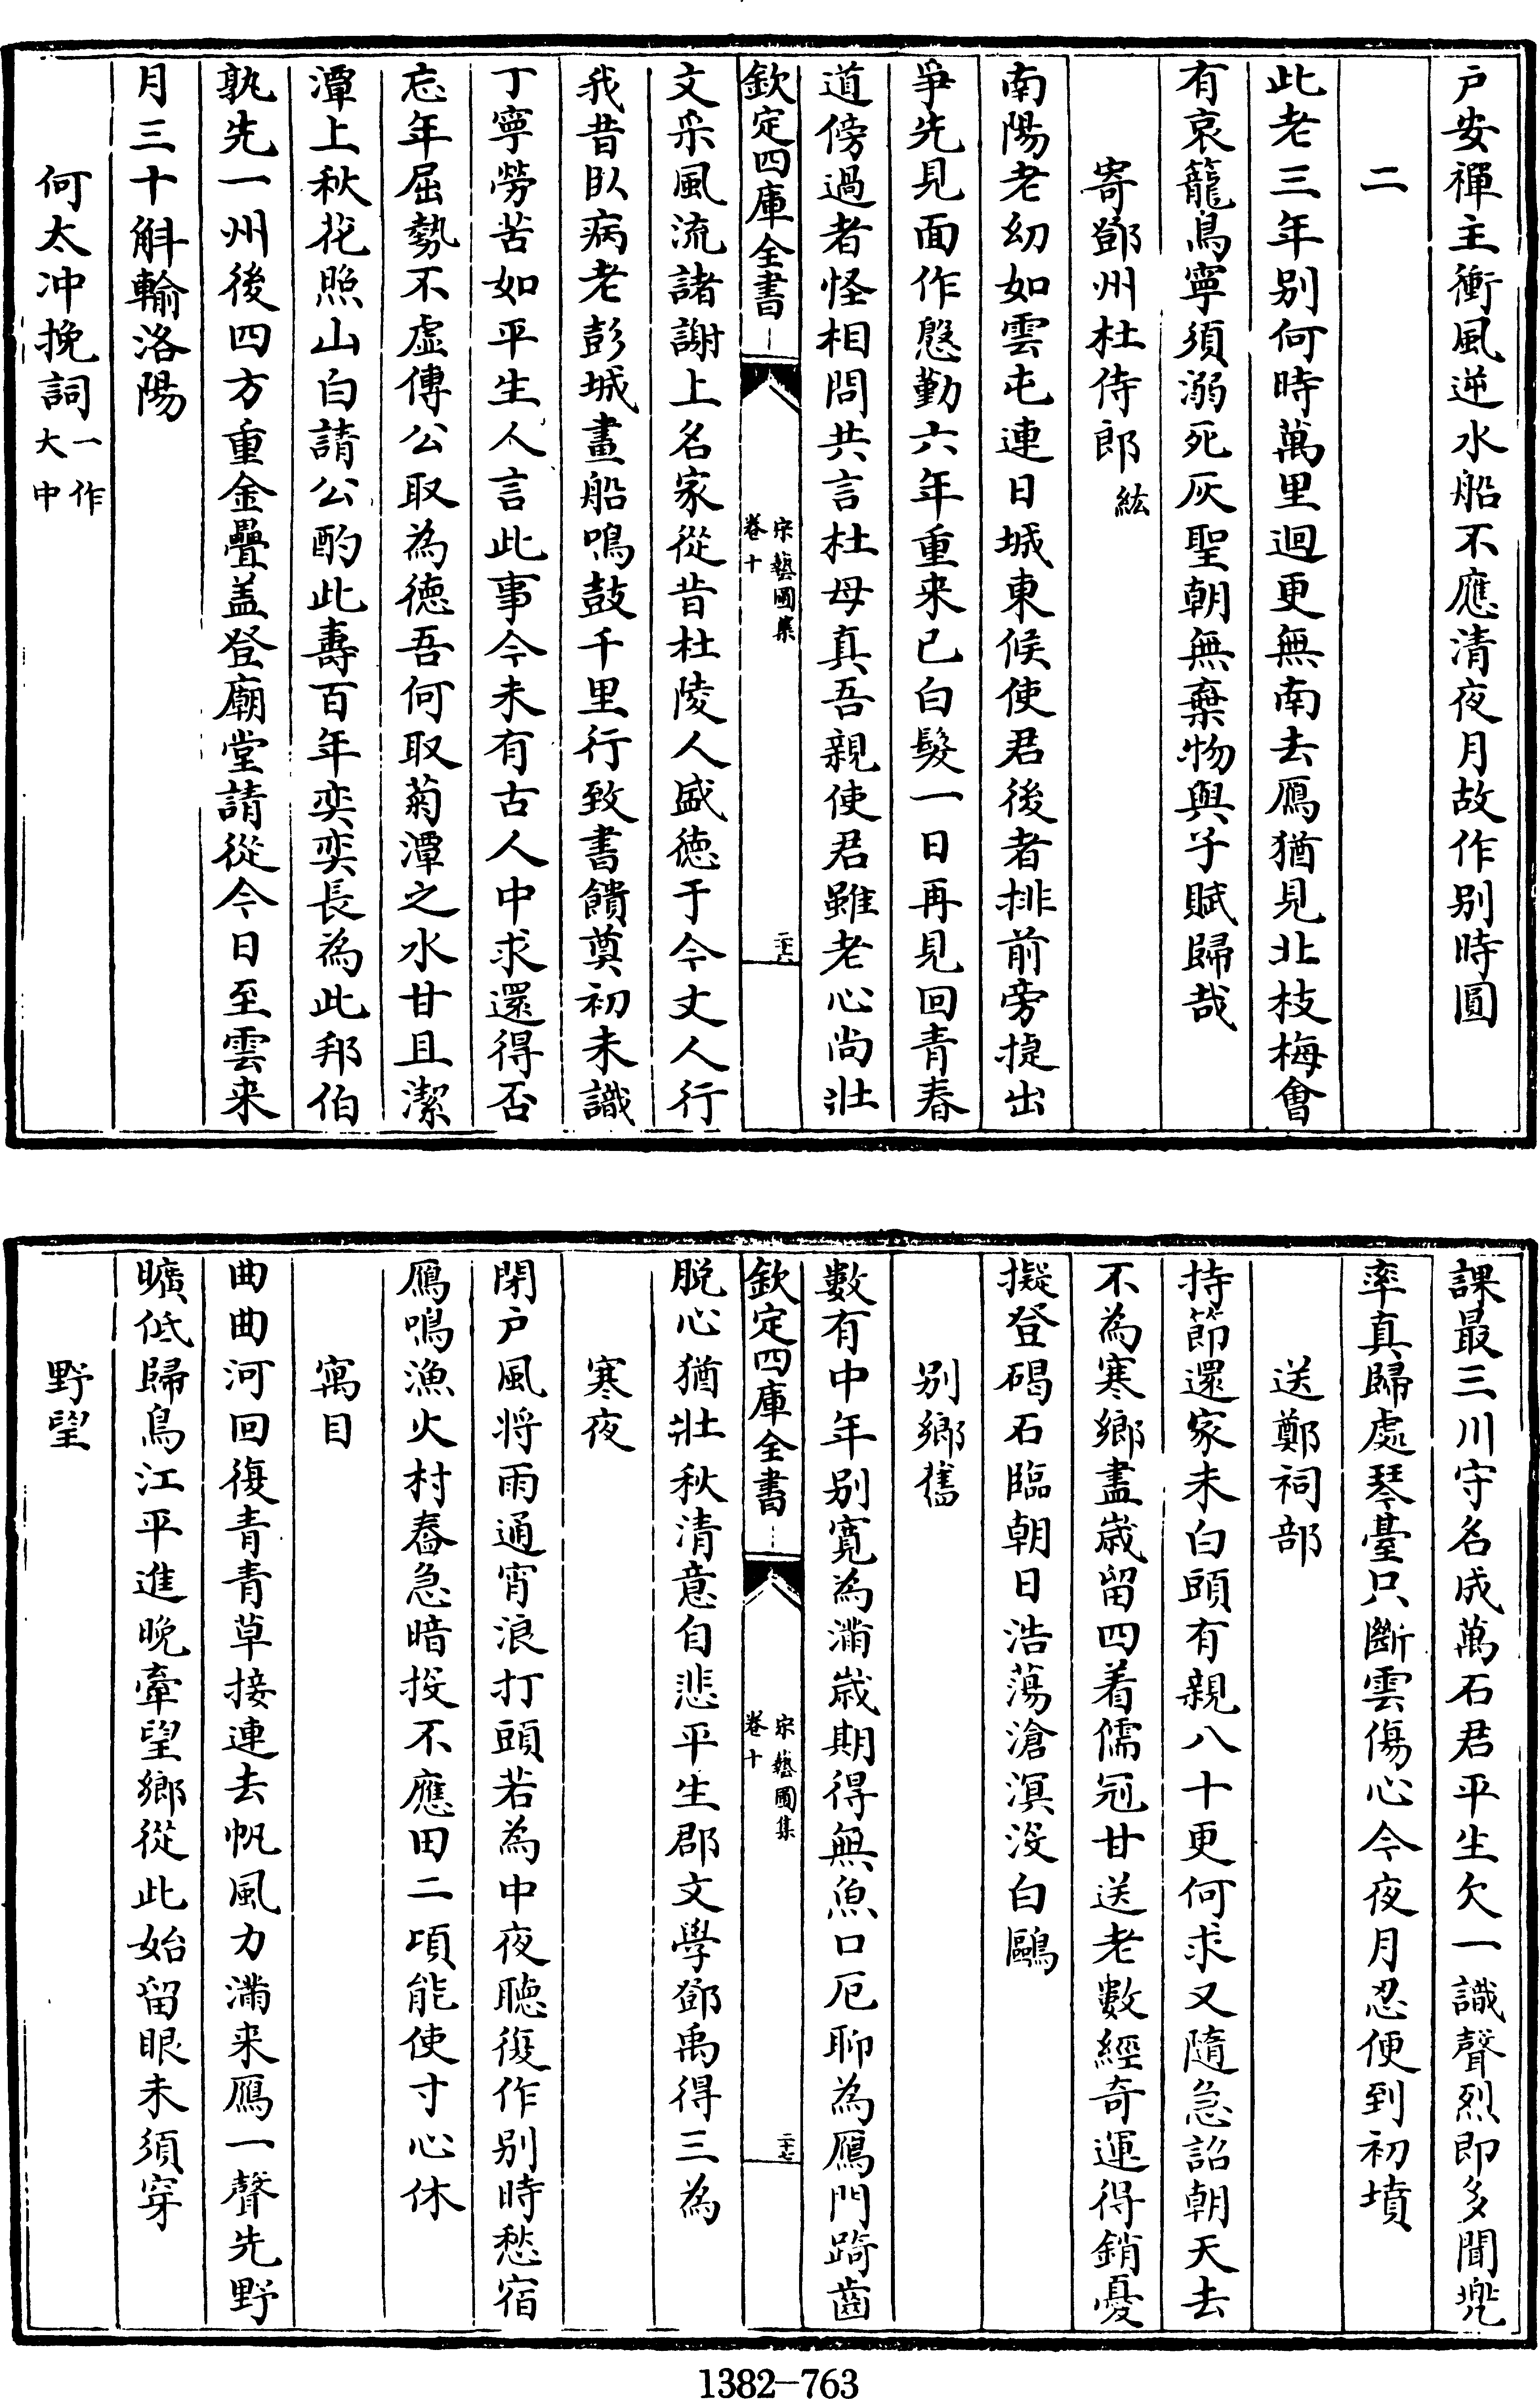 户安禪主衝風逆水船不應清夜月故作别時圓
二
此老三年别何時萬里迴更無南去鴈猶見北枝梅會
有哀籠鳥寧須溺死灰聖朝無棄物與子賦歸哉
寄鄧州杜侍郎紘
南陽老幼如雲屯連日城東候使君後者排前旁捷出
爭先見面作慇勤六年重来已白髮一日再見回青春
道傍過者怪相問共言杜母真吾親使君雖老心尚壯
欽定四庫全書
宋藝圃集
卷十
二十六
文采風流諸謝上名家從昔杜陵人盛徳于今丈人行
我昔臥病老彭城畫船鳴鼓千里行致書饋奠初未識
丁寧勞苦如平生人言此事今未有古人中求還得否
忘年屈勢不虛傳公取為徳吾何取菊潭之水甘且潔
潭上秋花照山白請公酌此壽百年奕奕長為此邦伯
孰先一州後四方重金疊盖登廟堂請從今日至雲来
月三十斛輸洛陽
何太冲挽詞一作大中
課最三川守名成萬石君平生欠一識聲烈即多聞兠
率真歸處琴臺只斷雲傷心今夜月忍便到初墳
送鄭祠部
持節還家未白頭有親八十更何求又隨急詔朝天去
不為寒鄉盡歳留四着儒冠甘送老數經奇運得銷憂
擬登碣石臨朝日浩蕩滄溟沒白鷗
别鄉舊
數有中年别寛為滿歳期得無魚口厄聊為鴈門踦齒
欽定四庫全書
宋藝圃集
卷十
二十七
脱心猶壯秋清意自悲平生郡文學鄧禹得三為
寒夜
閉户風将雨通宵浪打頭若為中夜聽復作别時愁宿
鴈鳴漁火村舂急暗投不應田二頃能使寸心休
寓目
曲曲河回復青青草接連去帆風力滿来鴈一聲先野
曠低歸鳥江平進晚牽望鄉從此始留眼未須穿
野望
1382-763